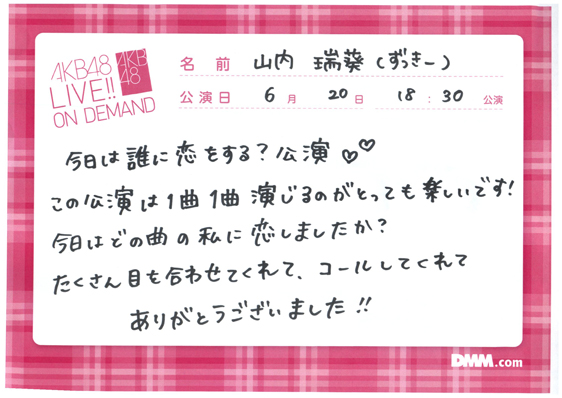 AKB48
LIVE!!
ON DEMAND
AKB
48
名前 山内 瑞葵(ずっきー)
公演日 6月 20日 18:30 公演
今日は誰に恋をする?公演♡♡
この公演は1曲1曲演じるのがとっても楽しいです!
今日はどの曲の私に恋しましたか?
たくさん目を合わせてくれて、コールしてくれて
ありがとうございました!!
DMM.com